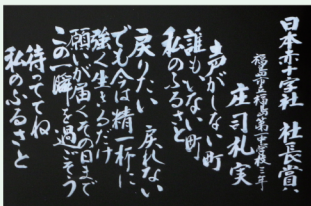 日本赤十字社 社長賞
福島市立福島第一中学校三年
庄司礼実
声がしない町
誰もいない町
私のふるさと
戻りたい 戻れない
でも今は精一杯に
強く生きるだけ
願いが届くその日まで
この一瞬を過ごそう
待っててね
私のふるさと